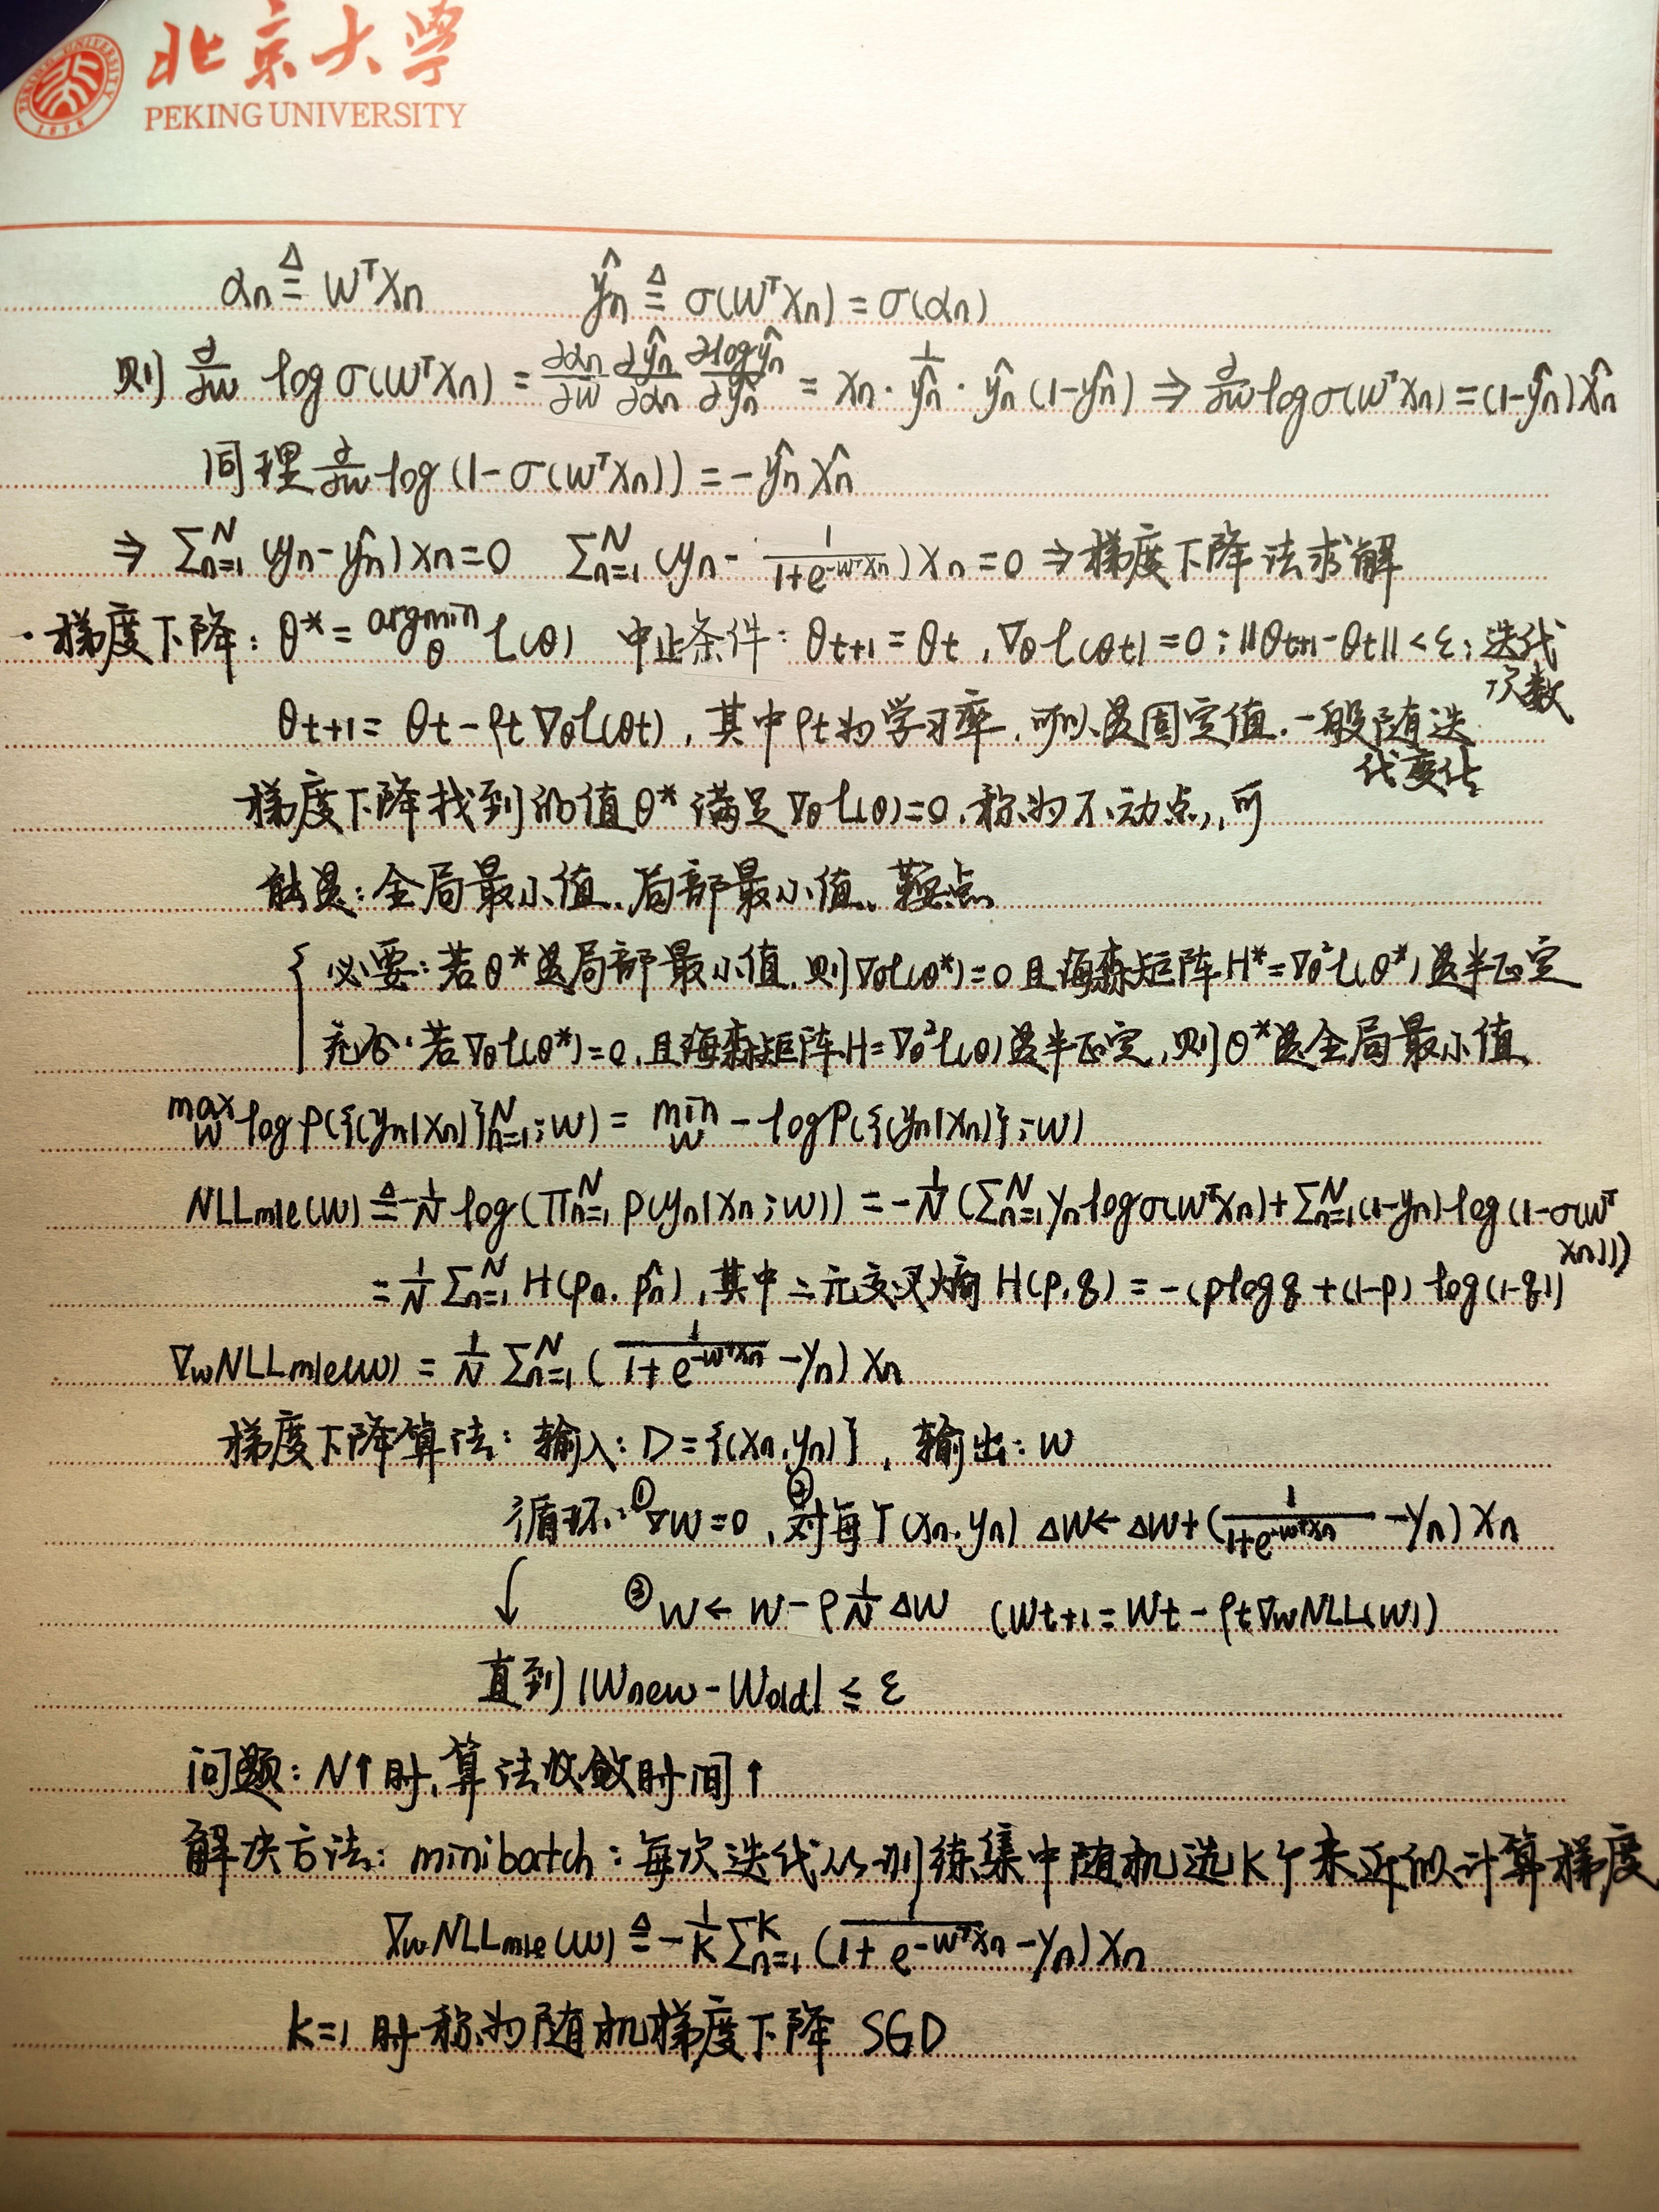 北京大学
PEKING UNIVERSITY
αn ≜ wᵀxn    ŷn ≜ σ(wᵀxn) = σ(αn)
则 ∂/∂w log σ(wᵀxn) = ∂αn/∂w ∂ŷn/∂αn ∂logŷn/∂ŷn = xn · 1/ŷn · ŷn(1-ŷn) ⇒ ∂/∂w log σ(wᵀxn) = (1-ŷn)x̂n
同理 ∂/∂w log(1-σ(wᵀxn)) = -ŷn x̂n
⇒ Σₙ₌₁ᴺ (yn-ŷn)xn=0    Σₙ₌₁ᴺ (yn - 1/(1+e^(-wᵀxn)))xn=0 ⇒ 梯度下降法求解
·梯度下降: θ* = argmin_θ L(θ)  中止条件: θt+1 = θt, ∇θL(θt)=0; ||θt+1-θt|| < ε; 迭代次数
θt+1 = θt - ρt∇θL(θt), 其中ρt为学习率, 可以是固定值. 一般随迭代变化
梯度下降找到的值θ*满足∇θL(θ)=0, 称为不动点, 可
能是: 全局最小值、局部最小值、鞍点
必要: 若θ*是局部最小值, 则∇θL(θ*)=0 且海森矩阵H*=∇θ²L(θ*)是半正定
充分: 若∇θL(θ*)=0, 且海森矩阵H=∇θ²L(θ)是半正定, 则θ*是全局最小值
max_w log p({(yn|xn)}ₙ₌₁ᴺ;w) = min_w - log p({(yn|xn)};w)
NLLmle(w) ≜ -1/N log(Πₙ₌₁ᴺ p(yn|xn;w)) = -1/N (Σₙ₌₁ᴺ yn log σ(wᵀxn) + Σₙ₌₁ᴺ (1-yn) log(1-σ(wᵀxn)))
= 1/N Σₙ₌₁ᴺ H(pn, p̂n), 其中二元交叉熵 H(p,q) = -(p log q + (1-p) log(1-q))
∇wNLLmle(w) = 1/N Σₙ₌₁ᴺ (1/(1+e^(-wᵀxn)) - yn)xn
梯度下降算法: 输入: D={(xn,yn)}, 输出: w
循环: ①∇w=0, ②对每个(xn,yn) Δw ← Δw + (1/(1+e^(-wᵀxn)) - yn)xn
↓ ③w ← w - ρ 1/N Δw  (wt+1 = wt - ρt∇wNLL(w))
直到 |Wnew - Wold| ≤ ε
问题: N↑时, 算法收敛时间↑
解决方法: minibatch: 每次迭代从训练集中随机选K个来近似计算梯度
∇wNLLmle(w) ≜ -1/K Σₙ₌₁ᴷ (1/(1+e^(-wᵀxn)) - yn)xn
K=1 时称为随机梯度下降 SGD